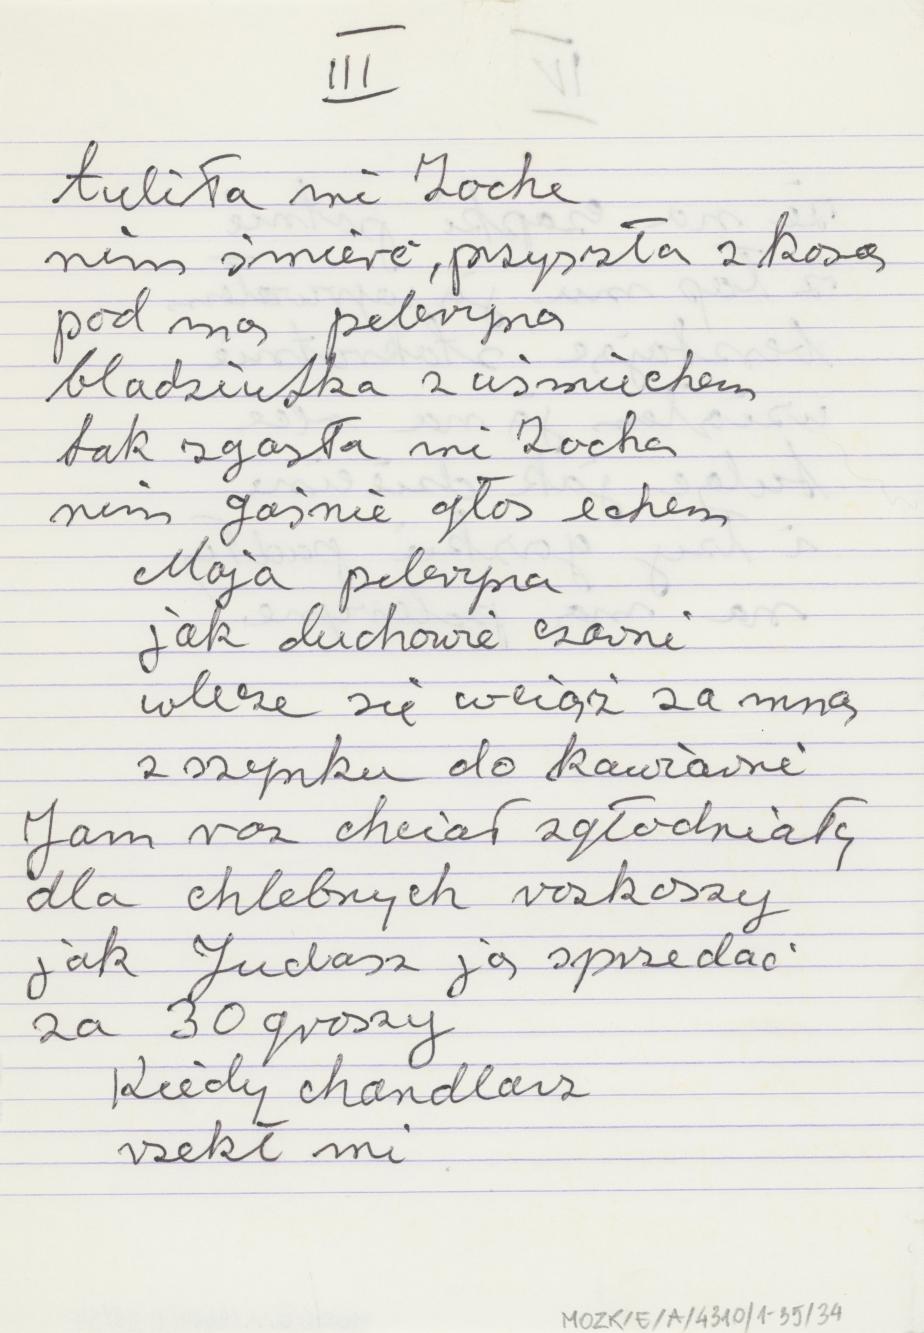 III
tuliła mi Zoche
nim śmierć, przyszła z kosą
pod mą peleryną
bladziutka z uśmiechem
tak zgasła mi Zocha
nim gaśnie głos echem
Moja peleryna
jak duchowie czarni
wlecze się wciąż za mną
z szynku do kawiarni
Jam raz chciał zgłodniały
dla chlebnych rozkoszy
jak Judasz ją sprzedać
za 30 groszy
Kiedy chandlarz
rzekł mi
MOZK/E/A/4310/1-35/34